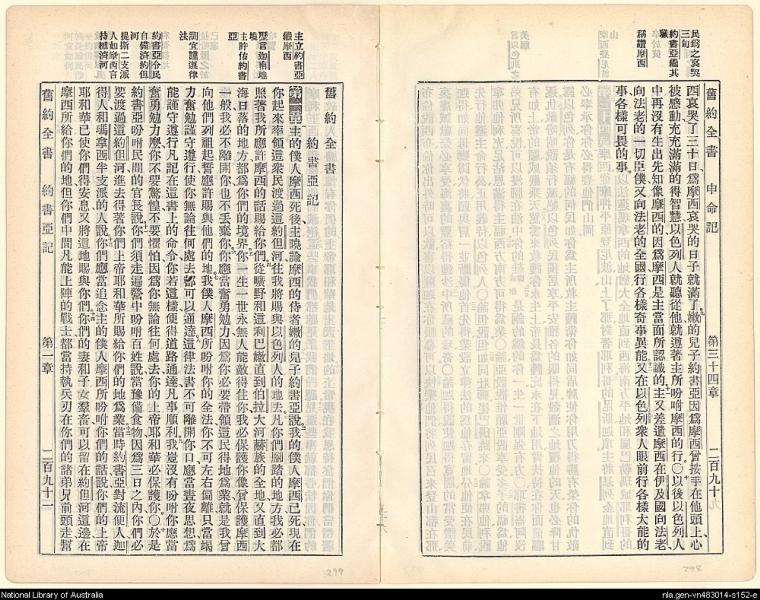 民爲之哀哭
三旬
約書亞繼其
職
稱讚摩西
舊約全書 申命記 第三十四章 二百九十
西哀哭了三十日爲摩西哀哭的日子就滿了嫩的兒子約書亞因爲摩西曾按手在他頭上心
被感動充充滿滿的得智慧以色列人就聽從他就遵著主所吩咐摩西的行〇以後以色列人
中再沒有生出先知像摩西的因爲摩西是主當面所認識的主又差遣摩西在伊及國向法老
向法老的一切臣僕又向法老的全國行各樣奇事異能又在以色列衆人眼前行各樣大能的
事各樣可畏的事
主立約書亞
繼摩西
主許佑約書
亞
舊約全書
約書亞記
主的僕人摩西死後主曉諭摩西的侍者嫩的兒子約書亞說我的僕人摩西已死現在
你起來率領這衆民渡過這約但河往我將賜與以色列人的地去凡你們腳踏的地方我必都
照著我所應許摩西的話賜給你們從曠野和這利巴嫩直到伯拉大河赫族的全地又直到大
海日落的地方都爲你們的境界你一生一世永無人能敵得住你我必保護你像曾保護摩西
一般我必不離開你也不丟棄你你應當奮勇勉力因爲你必要帶領這民得地爲業就是我曾
向他們列祖起誓應許賜與他們的地我僕人摩西所吩咐你的全法你不可左右偏離只當竭
力奮勉謹守遵行使你無論往何處去都可以通達這律法書不可離開你口應當晝夜思想爲
能謹守遵行凡記在這書上的命令你若這樣便得道路通達凡事順利我豈沒有吩咐你應當
奮勇勉力麼你不要驚惶不要懼怕因爲你無論往何處去你的上帝耶和華必保護你〇於是
約書亞吩咐民間的官長說你們須走遍營中吩咐百姓說當豫備食物因爲三日之內你們必
要渡過這約但河進去得著你們上帝耶和華所賜給你們的地爲業當時約書亞對流便人迦
得人和瑪拿西半支派的人說你們應當追念主的僕人摩西所吩咐你們的話說你們的上帝
耶和華已使你們得安息又將這地賜與你們你們的妻和子女羣畜可以留在約但河這邊在
摩西所給你們的地但你們中間凡能上陣的戰士都當持執兵刃在你們的諸弟兄前頭走幫
舊約全書 約書亞記 第一章 二百九十一
299
298
National Library of Australia
nla.gen-vn483014-s152-e